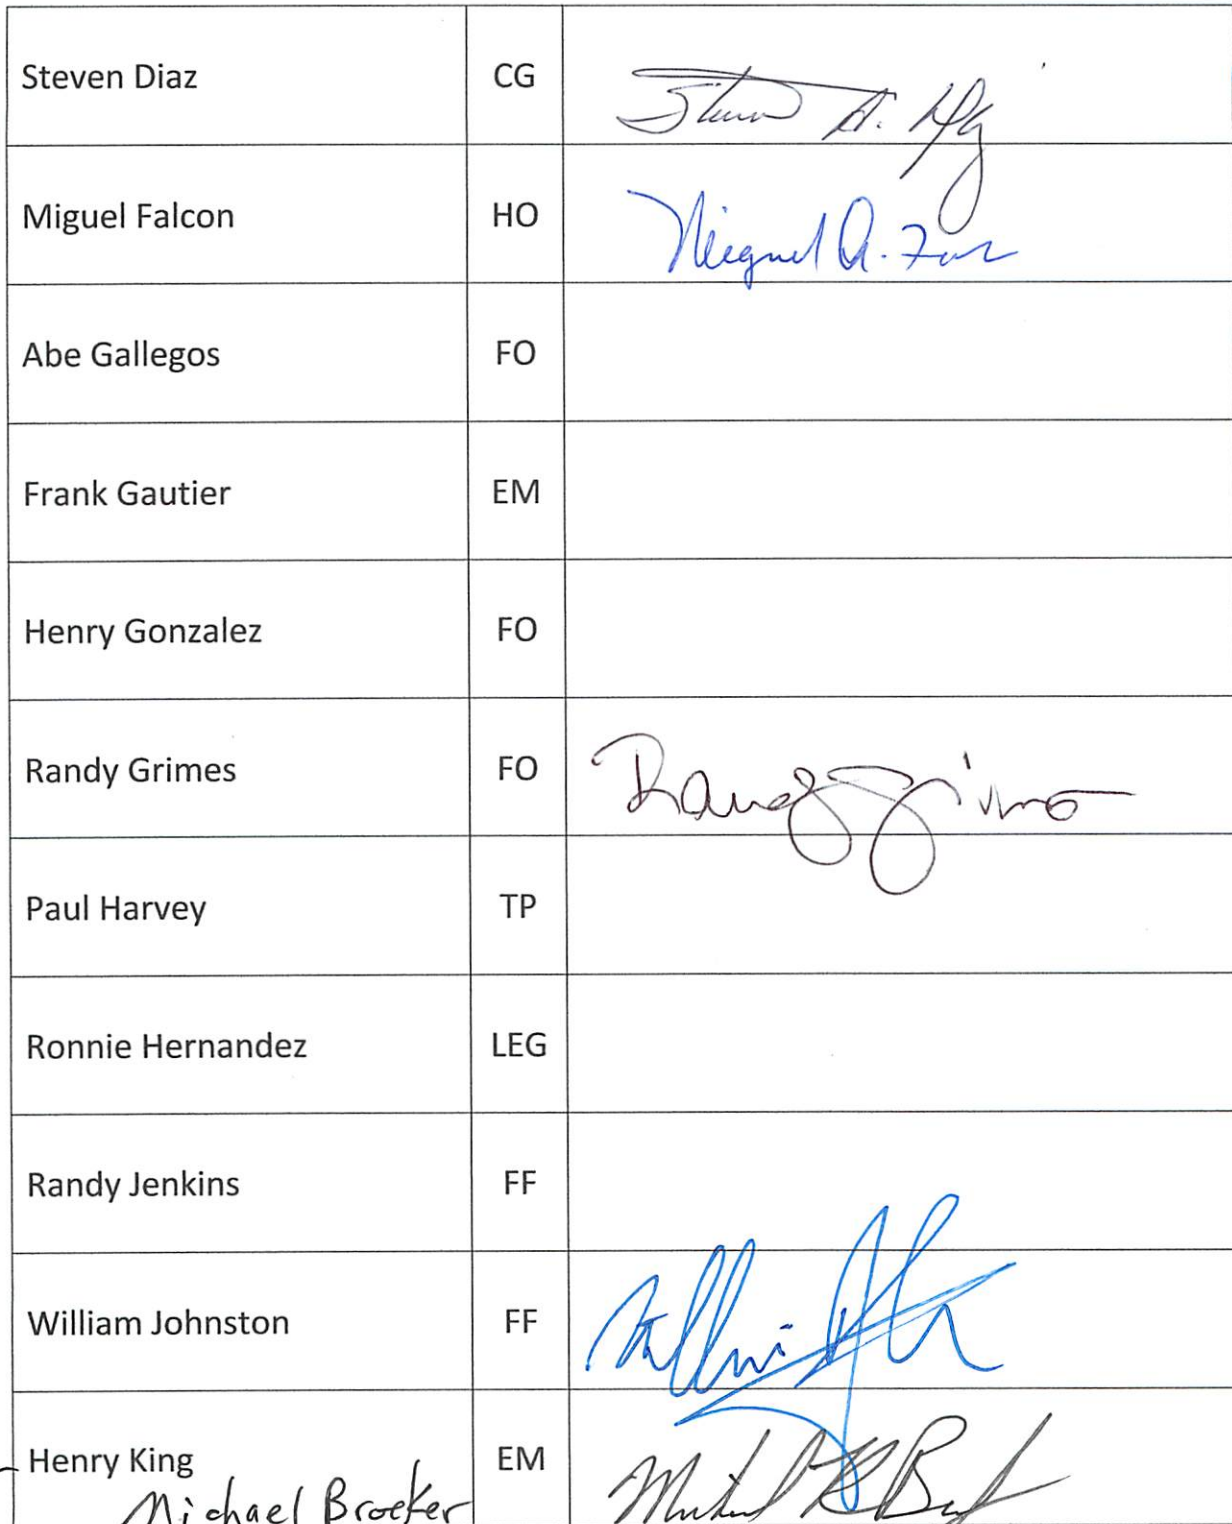 Steven Diaz CG Steven A. Diaz
Miguel Falcon HO Miguel A. Falcon
Abe Gallegos FO
Frank Gautier EM
Henry Gonzalez FO
Randy Grimes FO Randy Grimes
Paul Harvey TP
Ronnie Hernandez LEG
Randy Jenkins FF
William Johnston FF
Henry King EM
Michael Broeker